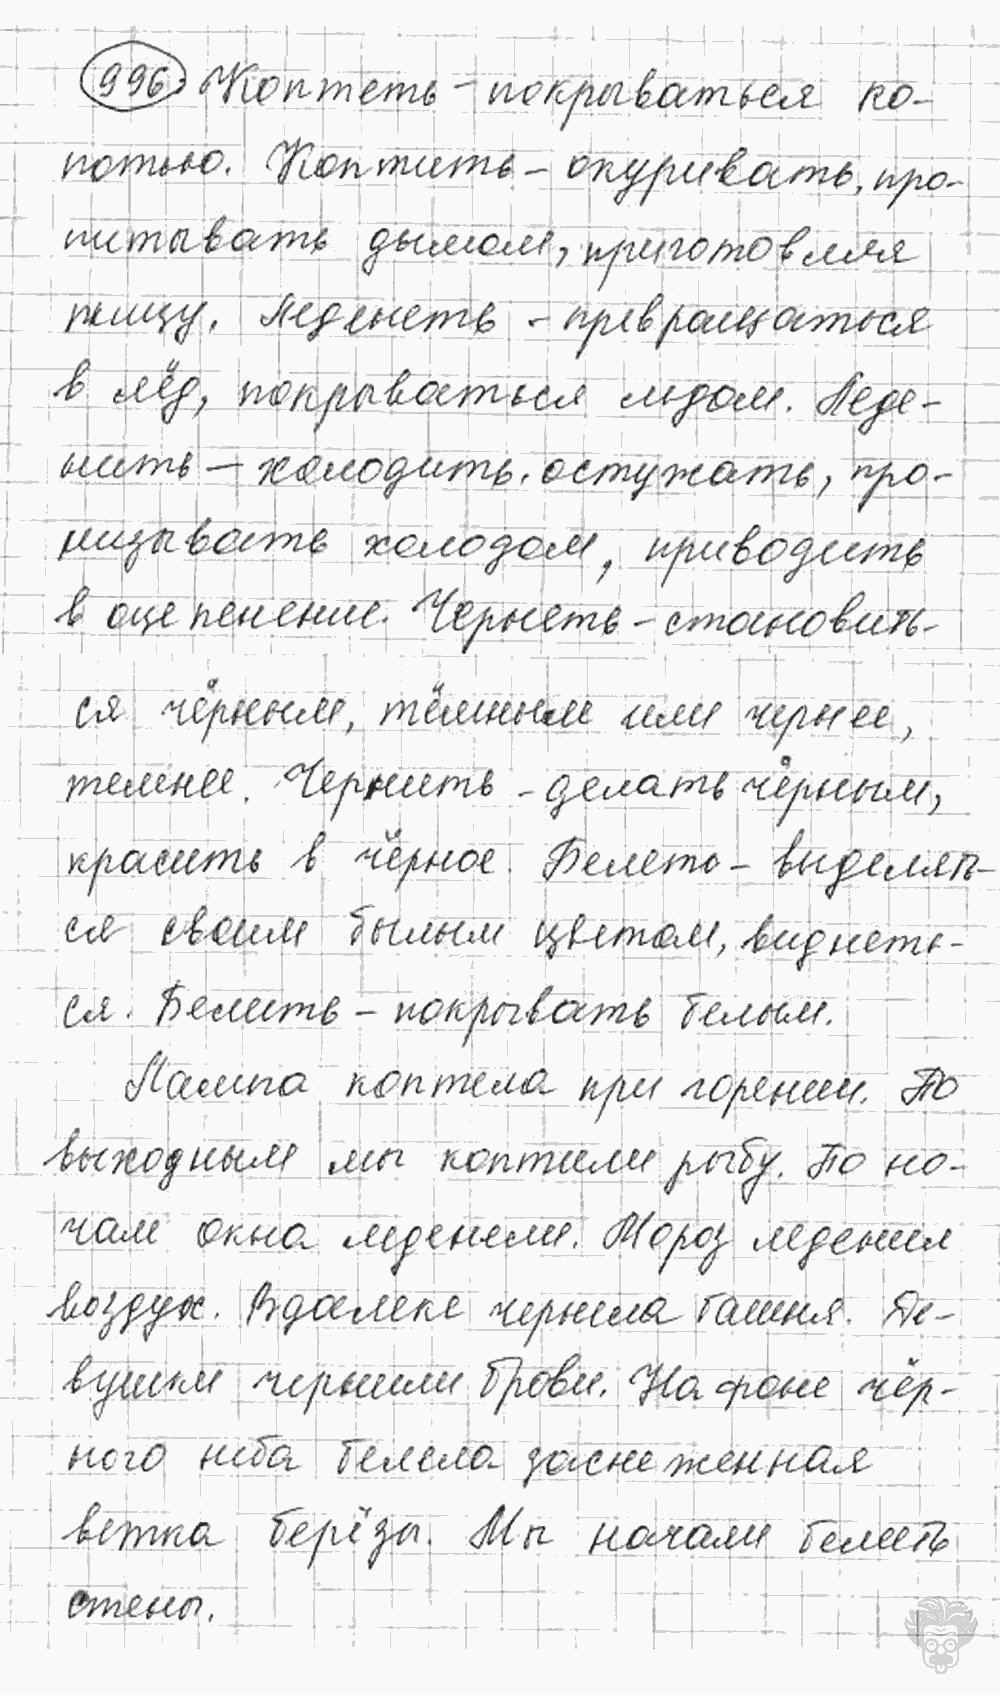 996. Коптеть - покрываться ко-
потью. Коптить - окуривать, про-
питывать дымом, приготовляя
пищу. Леденеть - превращаться
в лёд, покрываться льдом. Леде-
нить - холодить. остужать, про-
низывать холодом, приводить
в оцепенение. Чернеть - становить-
ся чёрным, тёмным или чернее,
темнее. Чернить - делать чёрным,
красить в чёрное. Белеть - выделять-
ся своим былым цветом, виднеть-
ся. Белить - покрывать белым.
Лампа коптела при горении. По
выходным мы коптили рыбу. По но-
чам окна леденели. Мороз леденил
воздух. Вдалеке чернела башня. Де-
вушки чернили брови. На фоне чёр-
ного неба белела заснеженная
ветка берёзы. Мы начали белить
стены.